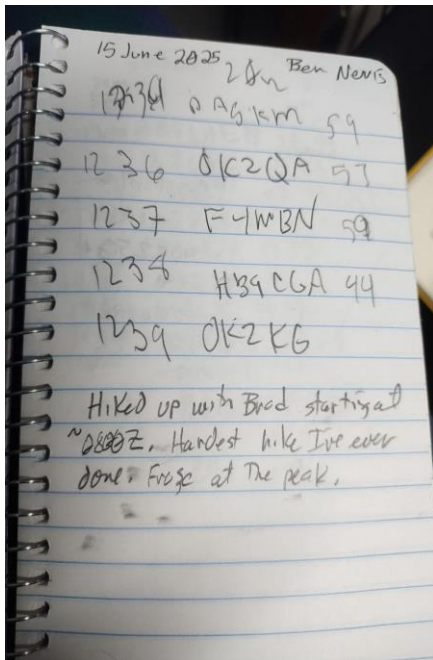 15 June 2025 20m Ben Nevis
1234 OA5KM 59
1236 OK2QA 57
1237 F4WBN 59
1238 HB9CGA 44
1239 OK2KG
Hiked up with Brad starting at
~ Z. Hardest hike I've ever
done. Froze at the peak.